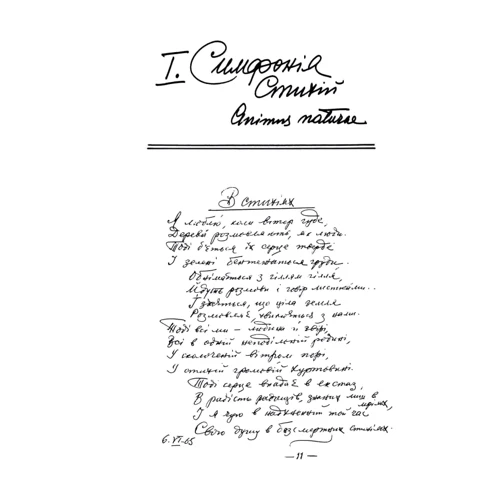 I. Симфонія
Стихій
Animus naturae
В стихіях
Я люблю, коли вітер гуде,
Дерева розмовляють, як люди.
Тоді б'ється їх серце тверде
І зелені бентежаться груди.
Обнімається з гіллям гілля,
Йдуть розмови і говір листками..
І здається, що ціла земля
Розмовляє, хвилюється з нами.
Тоді всі ми – людини й звірі,
Всі в одній неподільній родині,
У сколоченій вітром порі,
У стихій громовій хуртовині.
Тоді серце впадає в екстаз,
В радість радощів, знаних лиш в мріях,
І я чую в надхненний той час
Свою душу в безсмертних стихіях.
6.VI.65
– 11 –